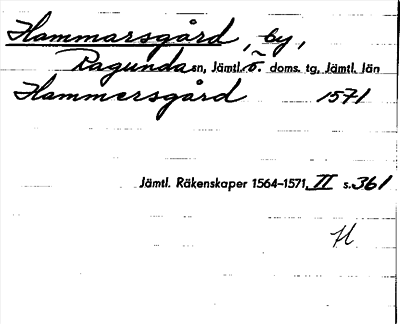 Hammarsgård, by,
Ragunda sn, Jämtl. ö. doms. tg, Jämtl. län
Hammersgård 1571
Jämtl. Räkenskaper 1564–1571, II s. 361
H